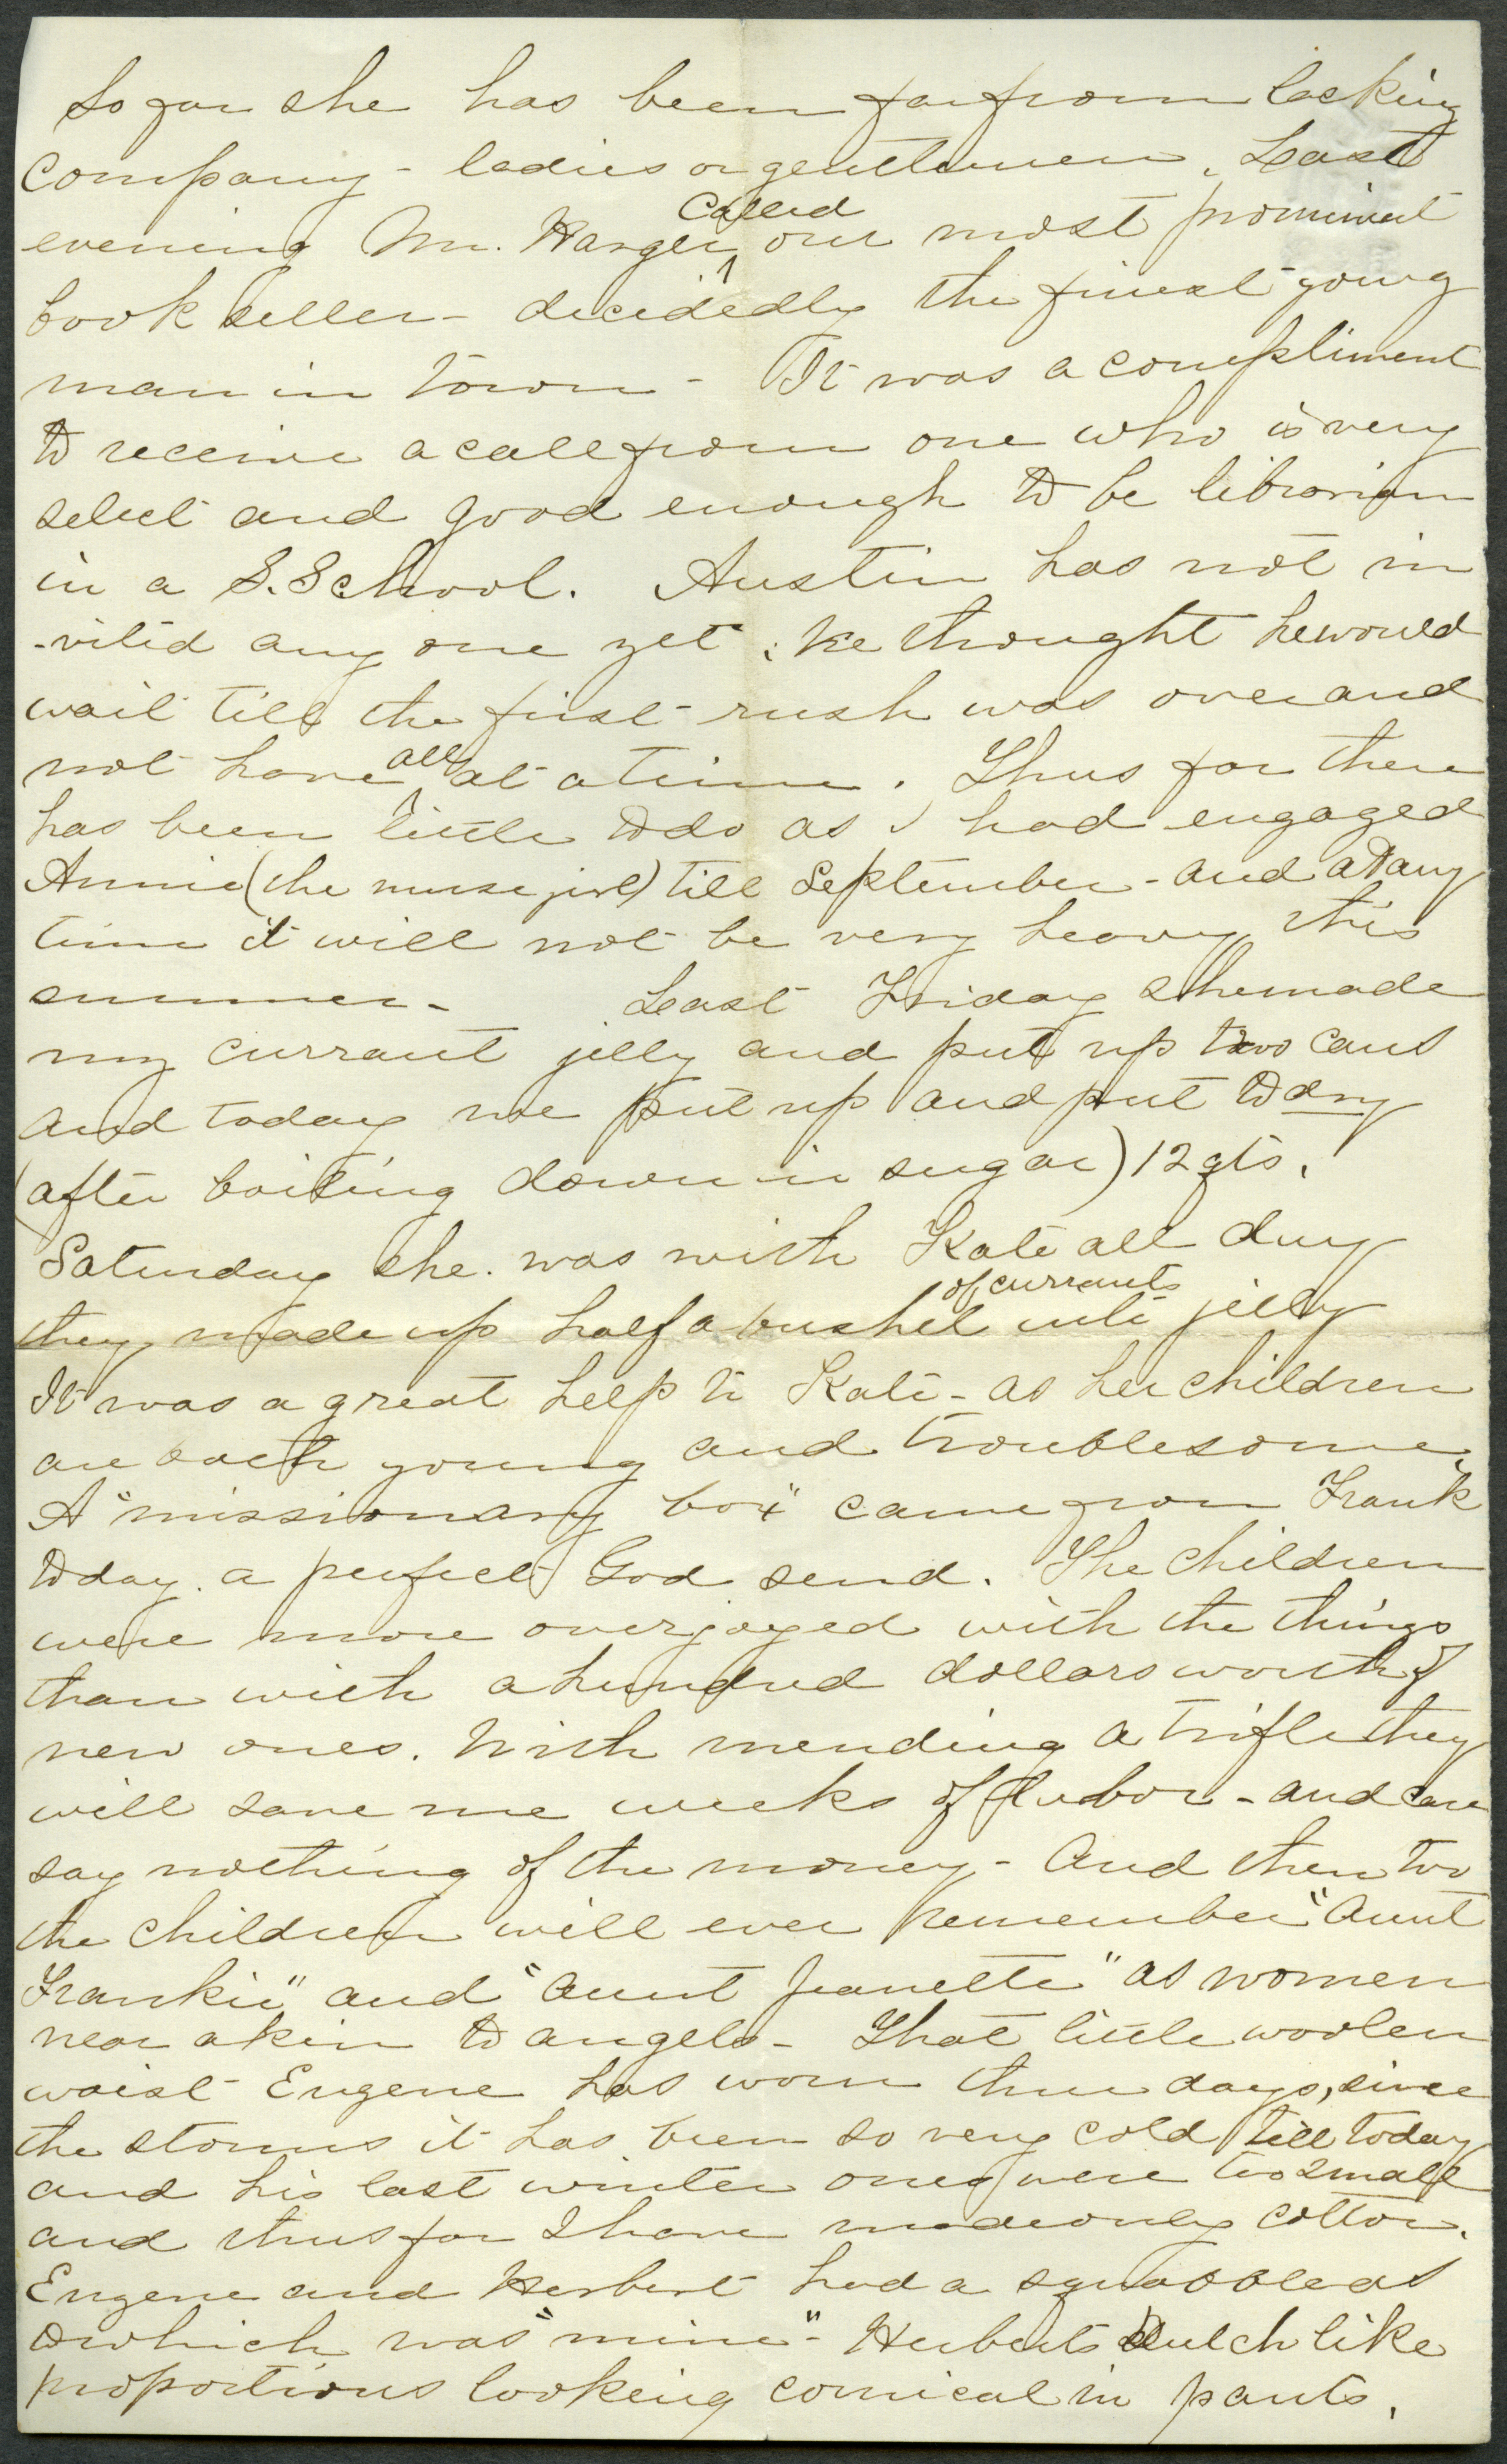 So far she has been far from lacking
company - ladies or gentlemen. Last
evening Mr. Harger ^called our most prominent
book seller - decidedly the finest young
man in town - It was a compliment
to receive a call from one who is very
select and good enough to be librarian
in a S. School. Austin has not in
-vited any one yet; he thought he would
wait till the first rush was over and
not have ^all at a time. Thus far there
has been little to do as I had engaged
Annie (the nurse girl) till September - and at any
time it will not be very heavy this
summer - Last Friday she made
my currant jelly and put up two cans
and today we put up and put to dry
(after boiling down in sugar) 12 qts.
Saturday she was with Kate all day
they made up half a bushel of currants into jelly
It was a great help to Kate - as her children
are both young and troublesome.
A "missionary box" came from Frank
today. a perfect God send. The children
were more overjoyed with the things
than with a hundred dollars worth of
new ones. With mending a trifle they
will save me weeks of labor - and care
say nothing of the money - And then too
the children will ever remember "Aunt
Frankie" and "Aunt Jeanette" as women
near akin to angels - That little woolen
waist Eugene has worn three days, since
the storms it has been so very cold till today
and his last winter ones were too small
and thus far I have made only cotton.
Eugene and Herbert had a squabble as
to which was "mine" - Herberts Dutch like
proportions looking comical in pants.